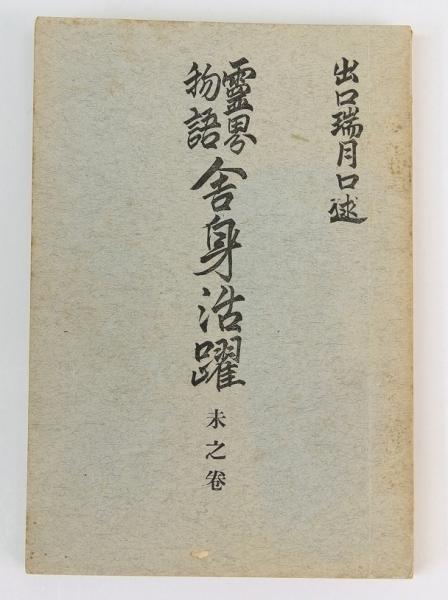 出口瑞月口述
靈界物語
舎身活躍 未之巻